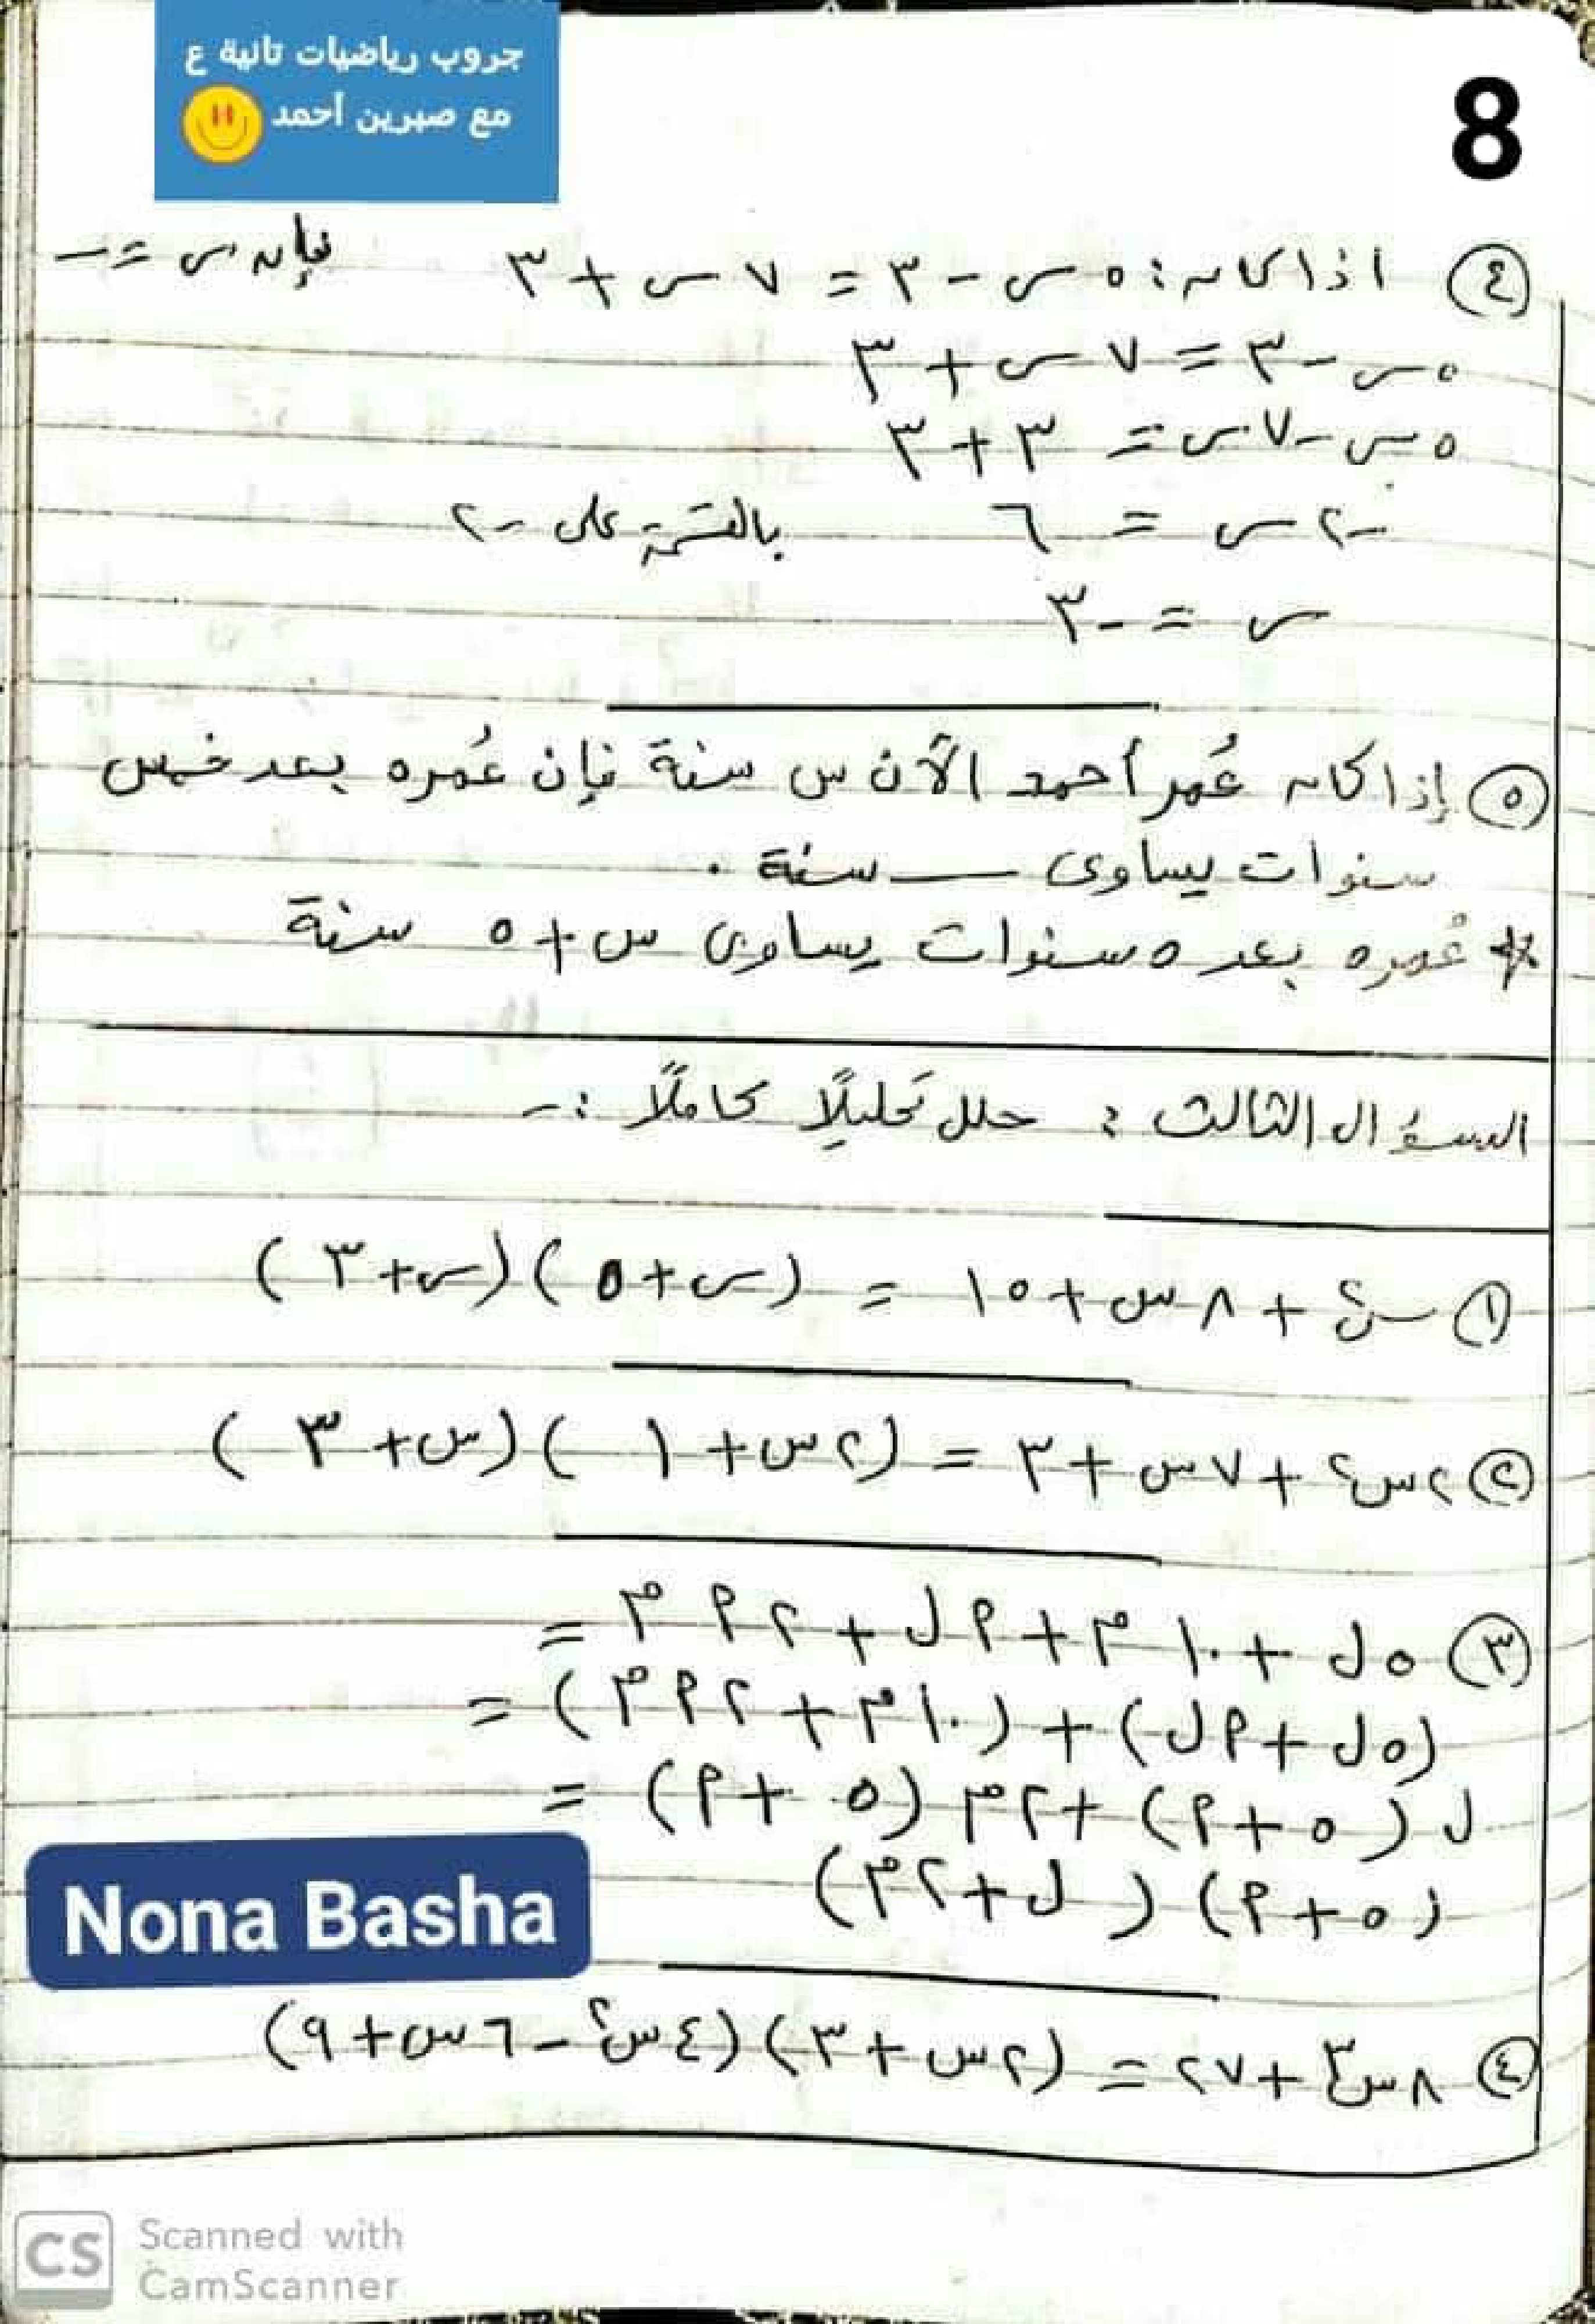 جروب رياضيات تانية ع
مع صبرين أحمد
8
٤ اذا كان: ٥س - ٣ = ٧س + ٣ فإن س = ـ
٥س - ٣ = ٧س + ٣
٥س - ٧س = ٣ + ٣
-٢س = ٦ بالقسمة على -٢
س = -٣
٥ إذا كان عُمر أحمد الآن س سنة فإن عُمره بعد خمس
سنوات يساوى ـــ سنة .
* عُمره بعد ٥ سنوات يساوى س + ٥ سنة
السؤال الثالث : حلل تحليلًا كاملًا :-
١ س٢ + ٨س + ١٥ = (س + ٥) (س + ٣)
٢ ٢س٢ + ٧س + ٣ = (٢س + ١) (س + ٣)
٣ ٥ل + ١٠م + ٩ل + ٢٩م =
(٥ل + ٩ل) + (١٠م + ٢٩م) =
ل (٥ + ٩) + ٢م (٥ + ٩) =
(٥ + ٩) (ل + ٢م)
Nona Basha
٤ ٨س٣ + ٢٧ = (٢س + ٣) (٤س٢ - ٦س + ٩)
CS Scanned with
CamScanner